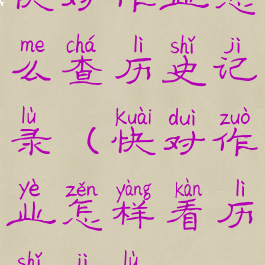 快对作业怎
me chá lì shǐ jì
么查历史记
lù kuài duì zuò
录（快对作
yè zěn yàng kàn lì
业怎样看历
shǐ jì lù